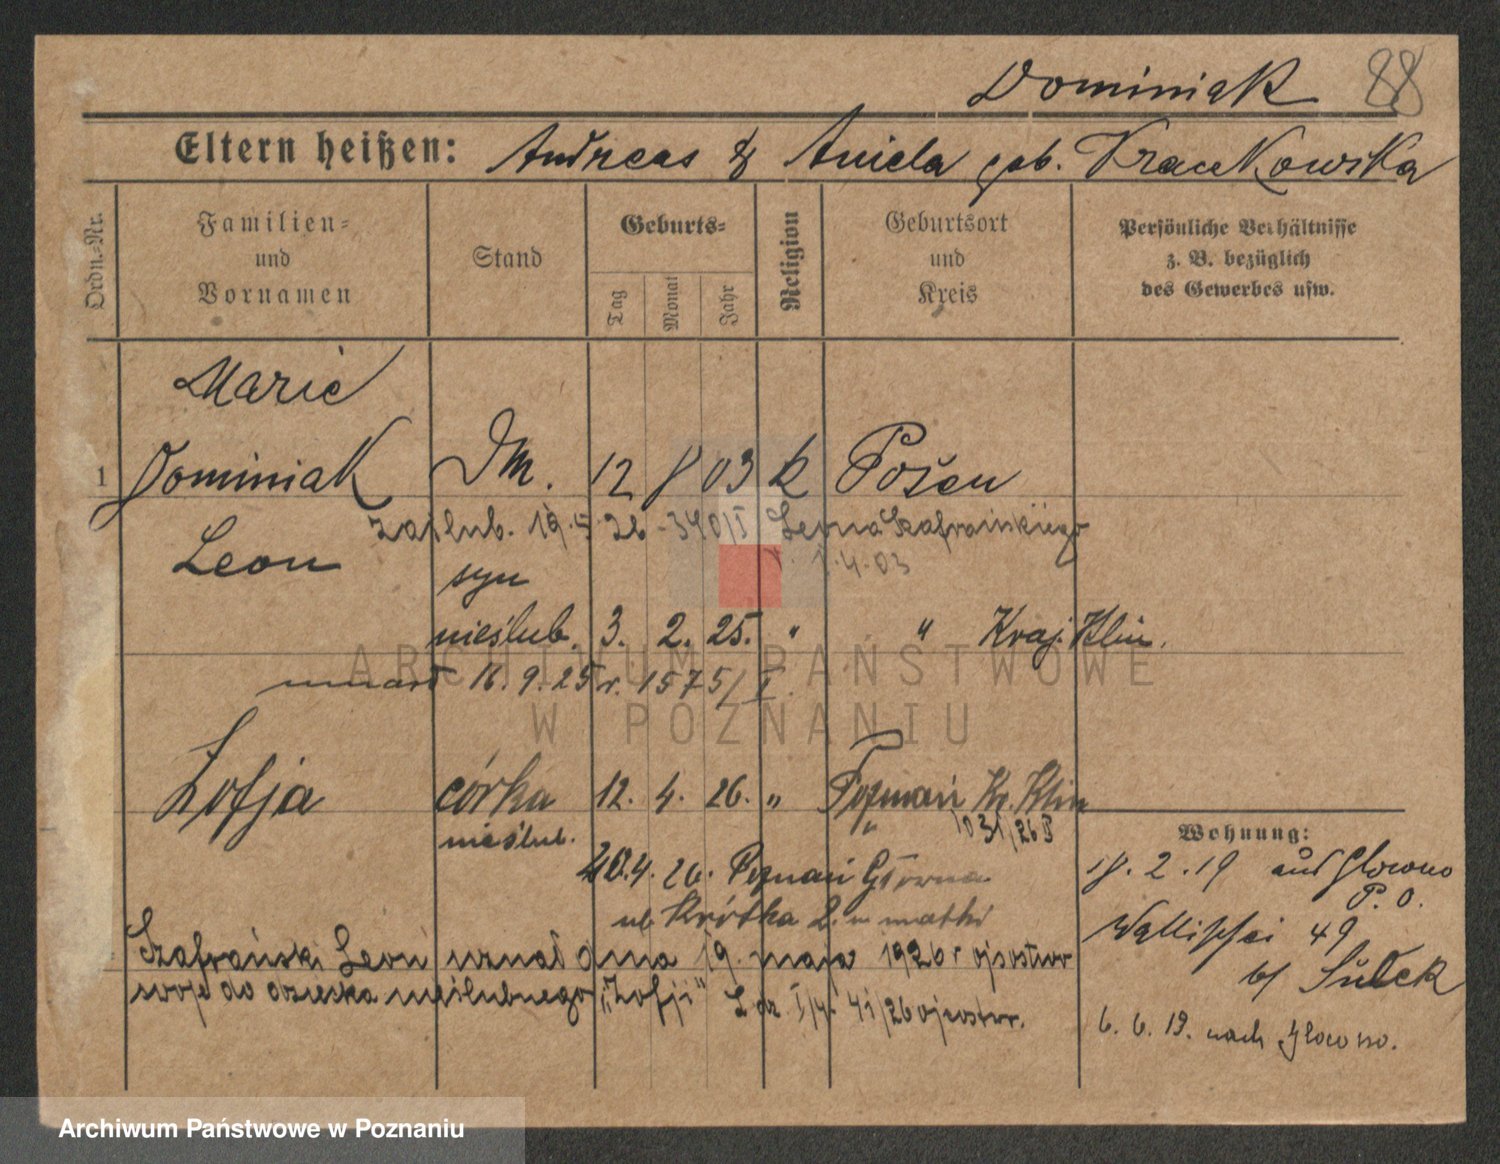 Dominiak 88
Eltern heißen: Andreas & Aniela geb. Kraczkowska
Ordn.-Nr.
Familien- und Vornamen
Stand
Geburts-
Tag
Monat
Jahr
Religion
Geburtsort und Kreis
Persönliche Verhältnisse
z. B. bezüglich
des Gewerbes usw.
Marie
1 Dominiak DM. 12 8 03 k Posen
zaślub. 19.5 26 - 340/I Leona Szafrańskiego
1.4.03
Leon syn
nieślub. 3. 2. 25. " " Kraj. Klin.
umarł 16.9.25 r. 1575/I.
Zofja córka 12. 4. 26. " Poznań Kr. Klin
nieślub. " 1031/26 I
20.4.26. Poznań Główna
ul Krótka 2. u matki
Szafrański Leon uznał dnia 19. maja 1926 r ojcostwo
swoje do dziecka nieślubnego "Zofji" L dz I/4 41/26 ojcostw.
Wohnung:
18.2.19 aus Glowno
P. O.
Wallischei 49
b/ Sulek
6.6.19. nach Glowno.
ARCHIWUM PAŃSTWOWE
W POZNANIU
Archiwum Państwowe w Poznaniu